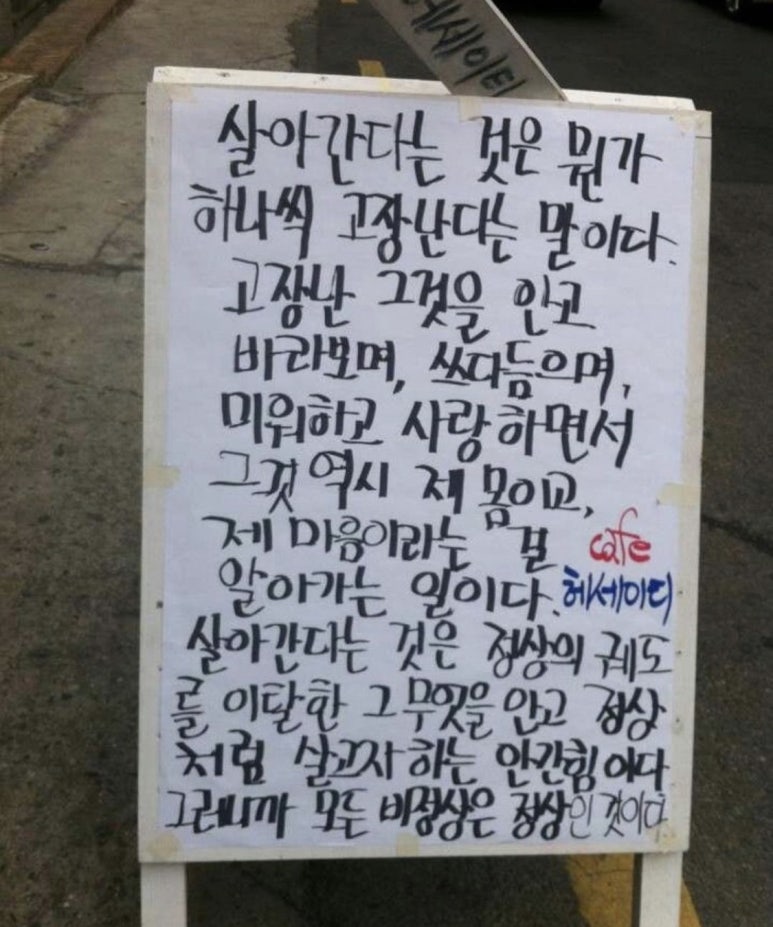 헤세이티
살아간다는 것은 뭔가
하나씩 고장난다는 말이다.
고장난 그것을 안고
바라보며, 쓰다듬으며,
미워하고 사랑하면서
그것 역시 제 몸이고,
제 마음이라는 걸
알아가는 일이다.
cafe
헤세이티
살아간다는 것은 정상의 궤도
를 이탈한 그 무엇을 안고 정상
처럼 살고자 하는 안간힘이다
그러니까 모든 비정상은 정상인 것이다.